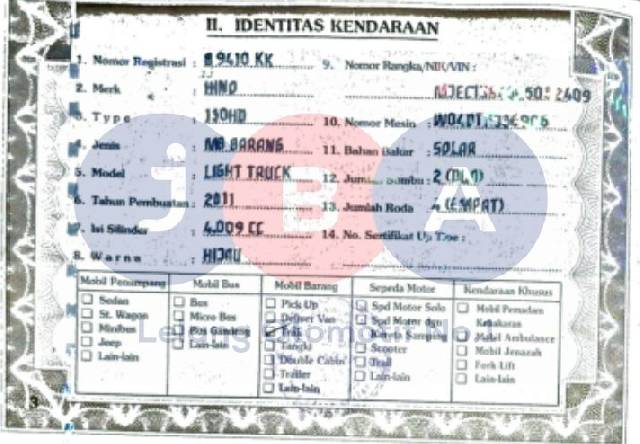 II. IDENTITAS KENDARAAN
1. Nomor Registrasi : B 9410 KK
2. Merk : HINO
3. Type : 130HD
4. Jenis : MB. BARANG
5. Model : LIGHT TRUCK
6. Tahun Pembuatan : 2011
7. Isi Silinder : 4.009 CC
8. Warna : HIJAU
9. Nomor Rangka/NIK/VIN :
10. Nomor Mesin :
11. Bahan Bakar : SOLAR
12. Jumlah Sumbu : 2 (DUA)
13. Jumlah Roda : 4 (EMPAT)
14. No. Sertifikat Uji Tipe :
Mobil Penumpang
Sedan
St. Wagon
Minibus
Jeep
Lain-lain
Mobil Bus
Bus
Micro Bus
Bus Gandeng
Lain-lain
Mobil Barang
Pick Up
Deliver Van
Truk
Tangki
Double Cabin
Trailer
Lain-lain
Sepeda Motor
Spd Motor Solo
Spd Motor dgn
Kereta Samping
Scooter
Trail
Lain-lain
Kendaraan Khusus
Mobil Pemadam
Kebakaran
Mobil Ambulance
Mobil Jenazah
Fork Lift
Lain-lain
JBA
3